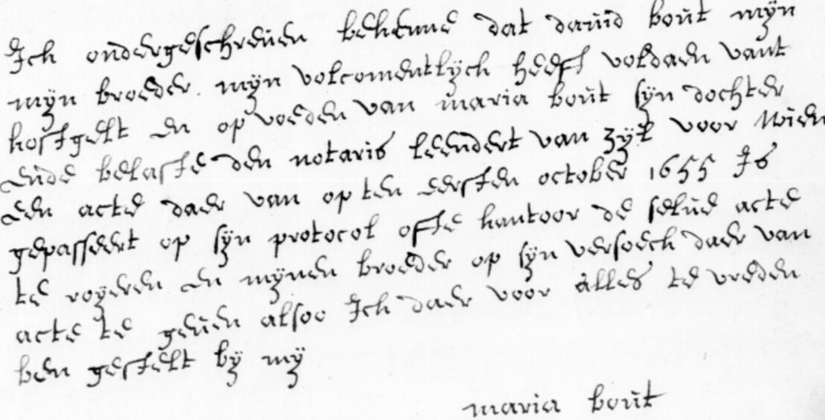 Ick ondergeschreven bekenne dat david bout myn
myn broeder myn volcomentlyck heeft voldaen vant
kostgelt en op voeden van maria bout syn dochter
ende belaste den notaris leendert van zyl voor wien
een acte daer van op ten eersten october 1655 Is
gepasseert op syn protocol ofte kantoor de selve acte
te royeren en mynen broeder op syn versoeck daer van
acte te geven alsoo Ick daer voor alles te vreden
ben gestelt by my
maria bout